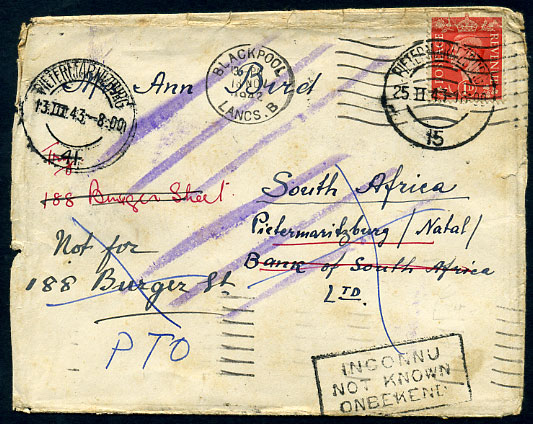 BLACKPOOL
1942
LANCS. B
POSTAGE REVENUE
PIETERMARITZBURG
13.III.43.-8.00
41
25.II.43
15
Ann Bird
188 Burger Street
South Africa
Pietermaritzburg / Natal /
Bank of South Africa
LTD.
Not for
188 Burger St
PTO
INCONNU
NOT KNOWN
ONBEKEND